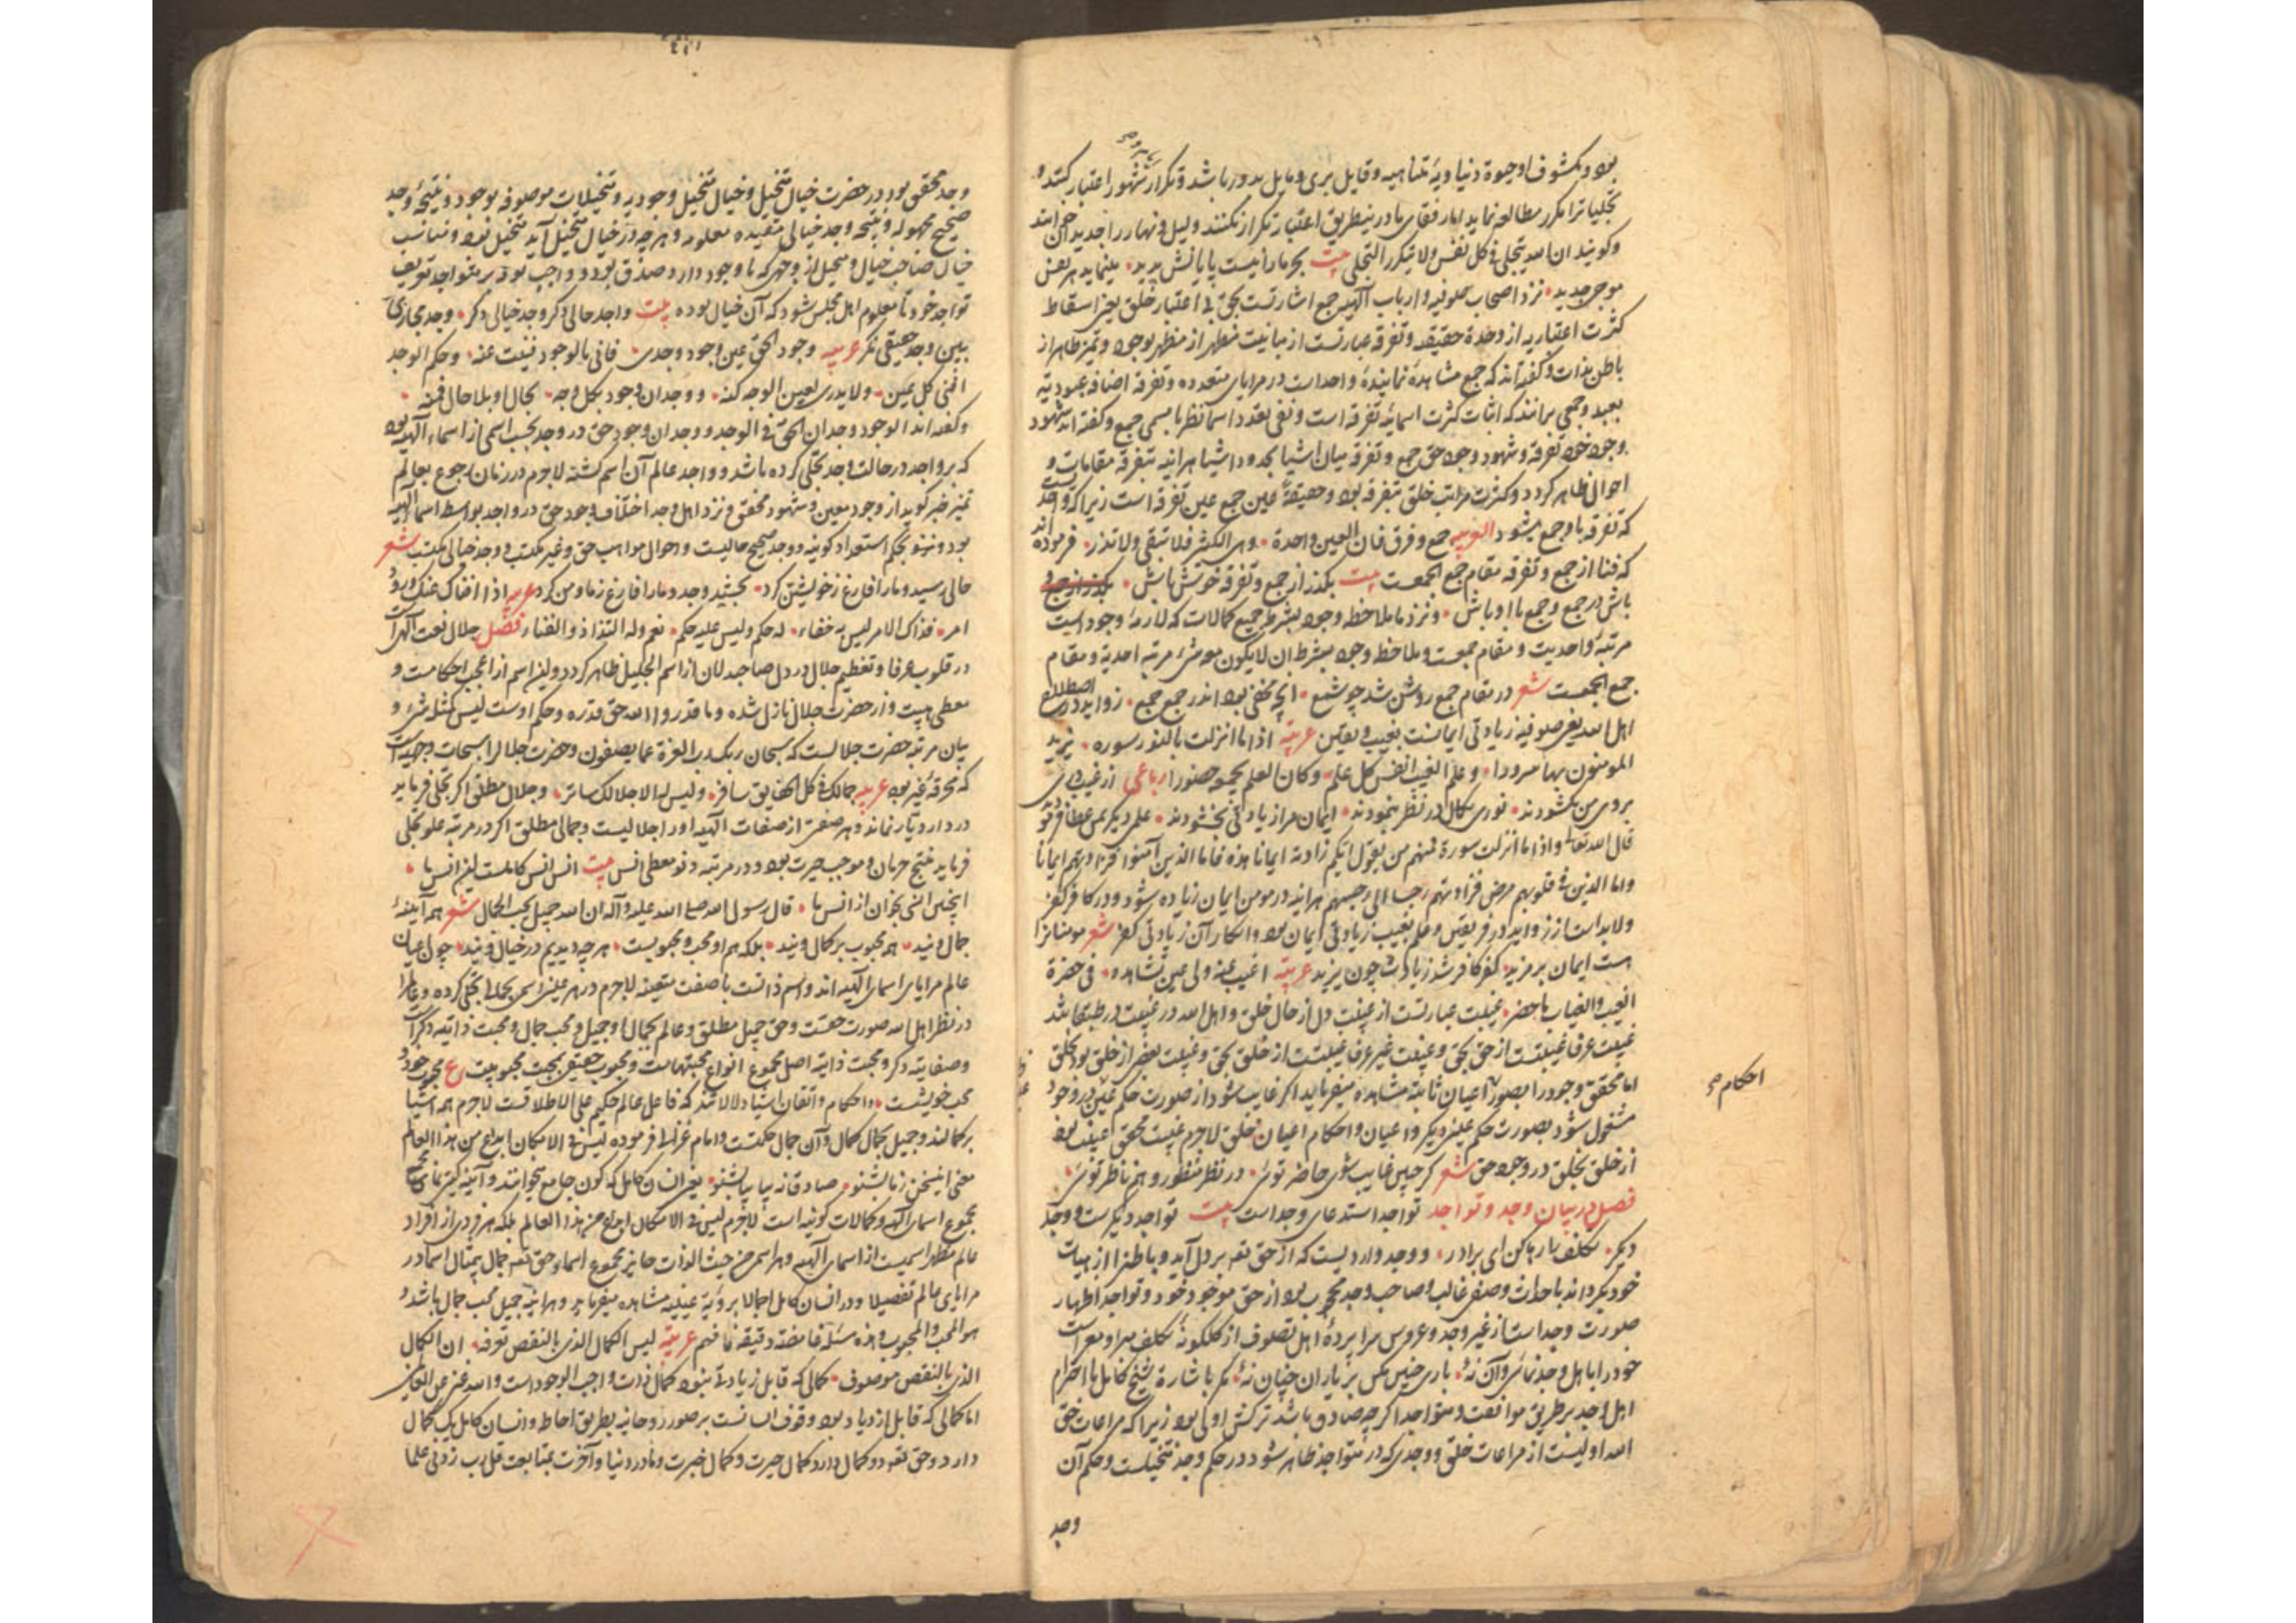 بود و مکشوف او حیوة دنیاویهٔ متناهیه و قایل بری و مایل بدور باشد و تکرار شهور اعتبار کند و
تجلیات را مکرر مطالعه نماید اما رفقای ما درین طریق اعتبار تکرار نکنند و لیل و نهار را جدیدان خوانند
و گویند ان الله یتجلی فی کل نفس و لا یتکرر التجلی بیت بحر ما را نیست پایانش پدید مینماید هر نفس
موجی جدید نزد اصحاب صوفیه و ارباب الهیه جمع اشارتست بحق بی اعتبار خلق یعنی اسقاط
کثرت اعتباریه از وحدة حقیقه و تفرقه عبارتست از مباینت مظهر از مظهر بوجود و تمیز ظاهر از
باطن بذات و گفته‌اند که جمع مشاهدهٔ نمایندهٔ واحد است در مرایای متعدده و تفرقه اضافه عبودیة
بعبد و جمعی برانند که اثبات کثرت اسمائیه تفرقه است و نفی تعدد اسما نظر بامسمی جمع و گفته‌اند شهود
وجود خود تفرقه و شهود وجود حق جمع و تفرقه میان اشیا بحدود اشیا هر آینه تفرقه مقامات و
احوال ظاهر گردد و کثرت مراتب خلق تفرقه بود و حقیقةً عین جمع عین تفرقه است زیرا که واحد
که تفرقه با و جمع میشود العربیه جمع و فرق فان العین واحدة وهی الکثیر فلا تبقی و لا تذر فرموده‌اند
که فنا از جمع و تفرقه مقام جمع الجمعست بیت بگذر از جمع و تفرقه خوش باش
باش در جمع و جمع با او باش و نزد ما ملاحظه وجود بشرط جمیع کمالات که لازمهٔ وجود است
مرتبهٔ واحدیت و مقام جمعست و ملاحظه وجود بشرط ان لا یکون معه شیء مرتبه احدیة و مقام
جمع الجمعست شعر در مقام جمع روشن شد چو شمع انچه مخفی بود اندر جمع جمع زواید در اصطلاح
اهل الله یعنی صوفیه زیادتی ایمانست بغیب و یقین عربیّة اذا ما انزلت بالنور سوره یزید
المومنون بها سرورا و علم الغیب انفس کل علم و کان العلم یجمعه حضورا رباعی از غیب دری
بروی من بگشودند نوری بکمال در نظر بنمودند ایمان مرا زیادتی بخشودند علمی دیگر بمن عطا فرمودند
قال الله تعالی و اذا ما انزلت سورة فمنهم من یقول ایکم زادته ایمانا هذه فاما الذین آمنوا فزادتهم ایمانا
و اما الذین فی قلوبهم مرض فزادتهم رجسا الی رجسهم هر آینه در مومن ایمان زیاده شود و در کافر کفر
ولا بد است از زواید در فریقین و علم بغیب زیادتی ایمان بود و انکار آن زیادتی کفر شعر مومنان را
هست ایمان بر مزید کفر کافر شد زیاده چون یزید عربیّة اغیب عنه ولی عین تشاهده فی حضرة
الغیب و الغیاب ما حضر غیبت عبارتست از غیبت دل از حال خلق و اهل الله در غیبت بر طبقات‌اند
غیبت عرفا غیبتست از حق بحق و غیبت غیر عرفا غیبتست از خلق بحق و غیبت بعضی از خلق بود بخلق
اما محقق وجود را بصور اعیان ثابته مشاهده میفرماید اگر غایب شود از صورت حکم عینی در وجود
مشغول شود بصورت حکم عینی دیگر و اعیان و احکام اعیان خلق لاجرم غیبت محقق غیبت بود
احکام صح
از خلق بخلق در وجود حق شعر گر چنین غایب شوی حاضر توئی در نظر منظور و هم ناظر توئی
فصل در بیان وجد و تواجد تواجد استدعای وجد است بیت تواجد دیگر است و وجد
دیگر تکلف را رها کن ای برادر و وجد واردیست که از حق تعه بر دل آید و باطن را از هیات
خود بگرداند باحداث وصفی غالب و صاحب وجد محجوب بود از حق موجود خود و تواجد اظهار
صورت وجد است از غیر وجد و عروس سراپردهٔ اهل تصوف از گلگونهٔ تکلف مبرا و معراست
خود را با اهل وجد نمائی و آن نهٔ باری چنین مکن بر یاران چنان نهٔ مگر باشارة شیخ کامل یا احترام
اهل وجد بر طریق موافقت و متواجد اگر چه صادق باشد ترکش اولی بود زیرا که مراعات حق
الله اولیست از مراعات خلق و وجدی که در متواجد ظاهر شود در حکم وجد متخیلست و حکم آن
وجد
وجد محقق بود در حضرت خیال متخیل و خیال متخیل وجودیه و متخیلات موصوفه بوجود و نتیجهٔ وجد
صحیح مجهوله و نتیجه وجد خیالی مقیده معلومه و هر چه در خیال متخیل آید متخیل بود و مناسب
خیال صاحب خیال و متخیل از وجهی که با وجود دارد صدق بود و واجب بود بر متواجد تعریف
تواجد خود تا معلوم اهل مجلس شود که آن خیال بوده بیت واجد حالی دگر و وجد خیالی دگر وجد مجازی
ببین وجد حقیقی نگر عربیه وجود الحق عین وجود وجدی فانی بالوجود فنیت عنه و حکم الوجد
افنی کل عین و لا یدری لعین الوجد کنه و وجدان وجود بکل وجه بحال او بلا حال فمنه
و گفته‌اند الوجود وجدان الحق فی الوجد و وجدان وجود حق در وجد بحسب اسمی از اسماء الهیه بود
که بر واجد در حالت وجد تجلی کرده باشد و واجد عالم آن اسم گشته لاجرم در زمان رجوع بعالم
تمیز خبر گوید از وجود معین و شهود محقق و نزد اهل وجد اختلاف وجود حق در واجد بواسطه اسماء الهیه
بود و نیز بحکم استعداد کونیه و وجد صحیح حالیست و احوال مواهب حق و غیر مکتسب و وجد خیالی مکتسب شعر
حالی رسید و ما را فارغ ز خویشتن کرد بخشید وجد و ما را فارغ ز ما و من کرد عربیه اذا افناک عنک ورود
امر فذاک الامر لیس به خفاء له حکم و لیس علیه حکم نعم وله التذاذ و الفناء فصل جلال نعت الهی است
در قلوب عرفا و تعظیم جلال در دل صاحبدلان از اسم الجلیل ظاهر گردد و این اسم از اعجب احکامست و
معطی هیبت و از حضرت جلال نازل شده و ما قدروا الله حق قدره و حکم اوست لیس کمثله شیء و
بیان مرتبهٔ حضرت جلالست که سبحان ربک رب العزة عما یصفون و حضرت جلال را سبحات وجهیه است
که محرقهٔ غیر بود عربیه جمالک فی کل الحقایق سافر و لیس له الا جلالک ساتر و جلال مطلق اگر تجلی فرماید
در دار دیار نماند و هر صفتی از صفات الهیه او را جلالیست و جمالی مطلق اگر در مرتبه علو تجلی
فرماید منتج حرمان و موجب حیرت بود و در مرتبه دنو معطی انس بیت انس انس کاملست این انس ما
اینچنین انسی بخوان از انس ما قال رسول الله صلی الله علیه و آله ان الله جمیل یحب الجمال شعر همه آینهٔ
جمال ویند همه محبوب بر کمال ویند بلکه هم او محب و محبوبست هر چه دیدیم در خیال ویند چون اعیان
عالم مرایای اسمای الهیه‌اند و اسم ذاتست با صفت متعینه لاجرم در هر عینی اسمی بجمالی تجلی کرده و عالم را
در نظر اهل الله صورت حقست و حق جمیل مطلق و عالم جمال او و جمیل محب جمال و محبت ذاتیه دگر است
و صفاتیه دگر و محبت ذاتیه اصل مجموع انواع محبتهاست و محبوب حقیقی بجهت محبوبیت ع محبوب خود و
محب خویشست و احکام و اتقان اشیا دلالاتند که فاعل عالم حکیم علی الاطلاقست لاجرم همه اشیا
بر کمالند و جمیل بجمال کمال و آن جمال حکمتست و امام غزالی فرموده لیس فی الامکان ابدع من هذا العالم
معنی این سخن ز ما بشنو صادقانه بیا بیا بشنو یعنی انسان کامل که کون جامع میخوانند و آینهٔ گیتی نمای
مجموع اسمای الهیه و کمالات کونیه است لاجرم لیس فی الامکان ابدع من هذا العالم بلکه هر فردی از افراد
عالم مظهر اسمیست از اسمای الهیه و هر اسمی من حیث الذات حایز مجموع اسما و حق تعه جمال بیمثال اسما در
مرایای عالم تفصیلا و در انسان کامل اجمالا برؤیة عینیه مشاهده میفرماید و هر آینه جمیل محب جمال باشد و
هو المحب و المحبوب و هذه مسئلة غامضة دقیقة فافهم عربیّة لیس الکمال الذی بالنقص تعرفه ان الکمال
الذی بالنقص موصوف کمالی که قابل زیادتی نبود کمال ذات واجب الوجود است و الله غنی عن العالمین
اما کمالی که قابل ازدیاد بود وقوف انسانست بر صور روحانیه بطریق احاطه و انسان کامل یک کمال
دارد و حق تعه دو کمال دارد کمال حیرت و کمال خبرت و ما در دنیا و آخرت بمتابعت قل رب زدنی علما